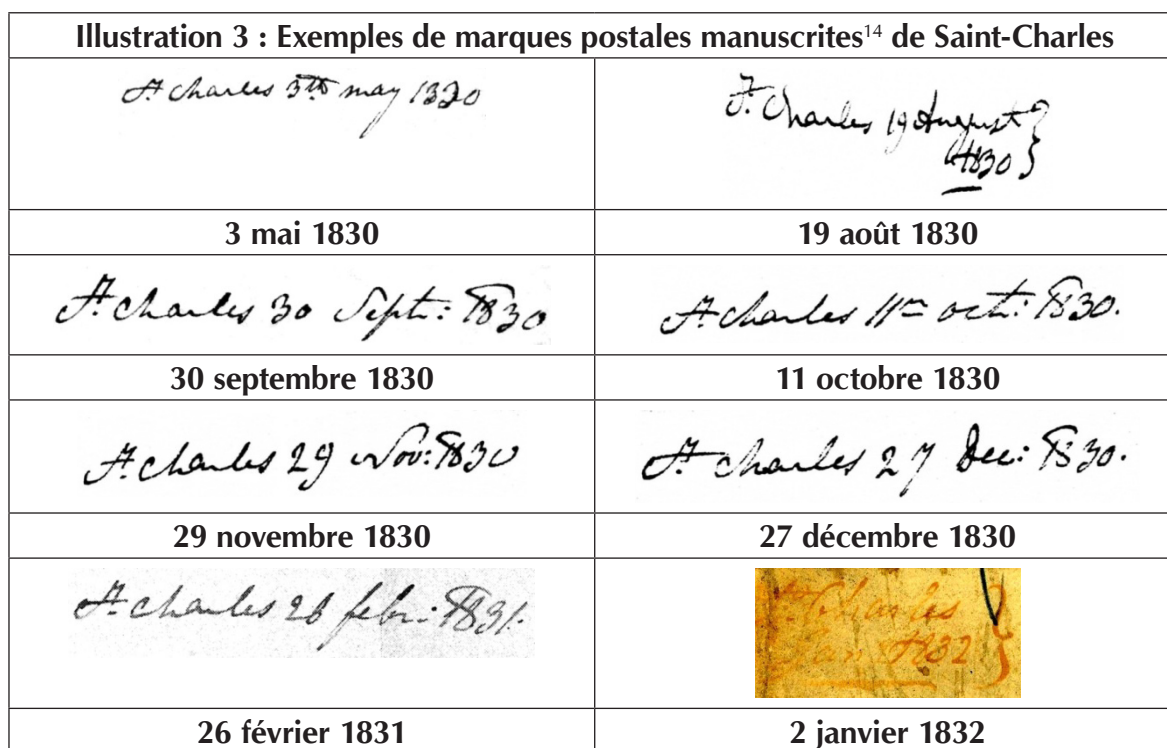 Illustration 3 : Exemples de marques postales manuscrites¹⁴ de Saint-Charles
St charles 3th may 1830
St Charles 19 August
1830
3 mai 1830
19 août 1830
St charles 30 Sept: 1830
St charles 11m oct: 1830.
30 septembre 1830
11 octobre 1830
St charles 29 Nov: 1830
St charles 27 Dec: 1830.
29 novembre 1830
27 décembre 1830
St charles 26 febr: 1831.
St Charles
Jan 1832
26 février 1831
2 janvier 1832